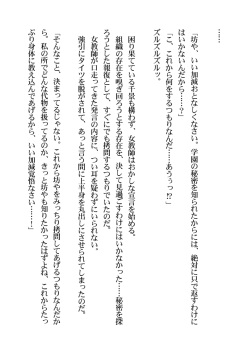 ……
「坊や、いい加減おとなしくなさい。学園の秘密を知られたからには、絶対に只で返すわけに
はいかないんだから……？」
「こ、これから何をするつもりなんだ……あうぅっ!?」
ズルズルズルッ。
困り果てている千景も構わず、女教師はおかしな宣言を始める。
組織の存在を嗅ぎ回ろうとする存在を、決して見過ごすわけにはいかなかった……秘密を探
ろうとした報復として、すぐにでも拷問するつもりでいたのだ。
女教師が口走ってきた発言の内容に、つい耳を疑わずにいられない。
強引にタイツを脱がされて、あっと言う間に上半身を丸出しにさせられてしまうの
だった。
「そんなこと、決まってるじゃない。これから坊やをみっちり拷問してあげるつもりなんだか
ら、私の所でどんな代物を扱ってるのか、きっと坊やも知りたかったはずよね、これからたっ
ぷり身体に教え込んであげるから、いい加減覚悟なさい……！」